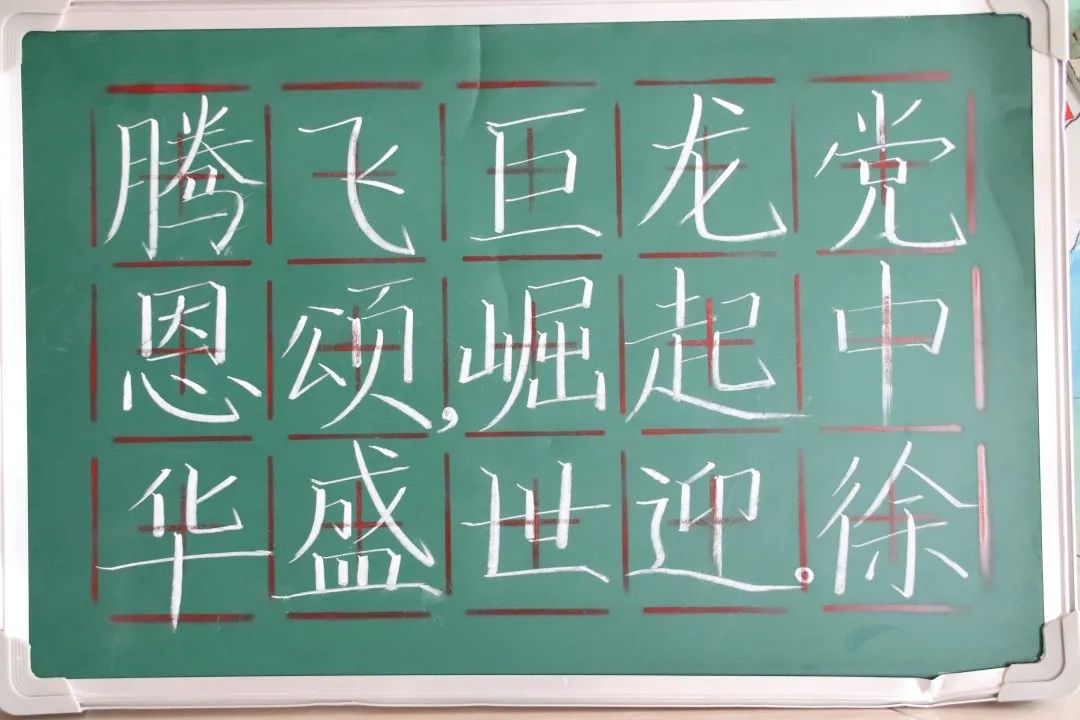 腾飞巨龙党
恩颂,崛起中
华盛世迎。徐